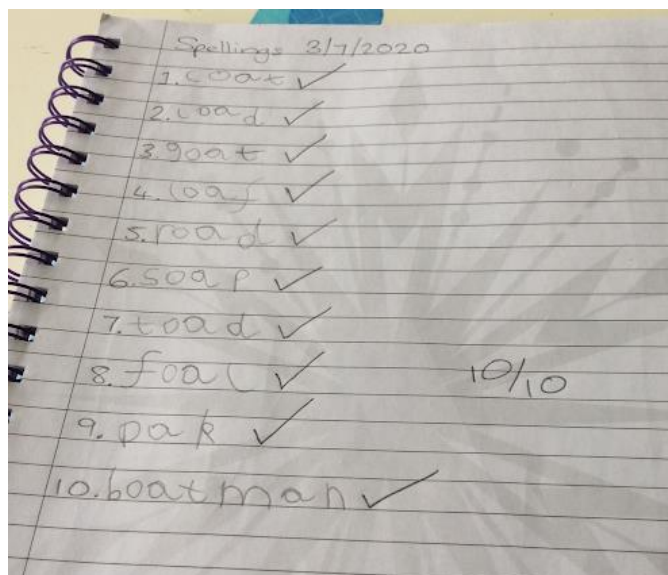 Spellings 3/7/2020
1. coat ✓
2. load ✓
3. goat ✓
4. loaf ✓
5. road ✓
6. soap ✓
7. toad ✓
8. foal ✓
10/10
9. oak ✓
10. boatman ✓